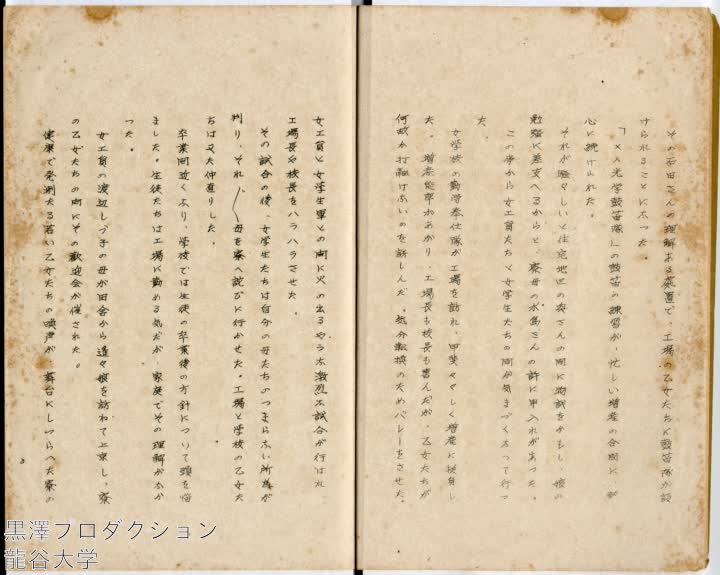 その石田さんの理解ある処置で、工場の乙女たちに鼓笛隊が設
けられることになった。
「××光学鼓笛隊」の鼓笛の練習が、忙しい増産の合間に、熱
心に続けられた。
それが騒々しいと住宅地区の奥さんの間に物議をかもし、娘の
勉強に差支へるからと、寮母の水島さんの許に申入れがあった。
この事から女工員たちと女学生たちの間が気まづくなって行っ
た。
女学校の勤労奉仕隊が工場を訪れ、甲斐々々しく増産に挺身し
た。増産能率があがり、工場長も校長も喜んだが、乙女たちが
何故か打融けないのを訝しんだ。気分転換のためバレーをさせた。
女工員と女学生軍との間に火の出るやうな激烈な試合が行はれ
工場長や校長をハラハラさせた。
その試合の後、女学生たちは自分の母たちのつまらない所為が
判り、それ〴〵母を寮へ詫びに行かせた。工場と学校の乙女た
ちは又た仲直りした。
卒業間近くなり、学校では生徒の卒業後の方針について頭を悩
ました。生徒たちは工場に勤める気だが、家庭でその理解がなか
った。
女工員の渡辺しづ子の母が田舎から遥々娘を訪ねて上京し、寮
の乙女たちの間にその歓迎会が催された。
健康で溌溂たる若い乙女たちの唄声が、舞台にしつらへた寮の
黒澤プロダクション
龍谷大学